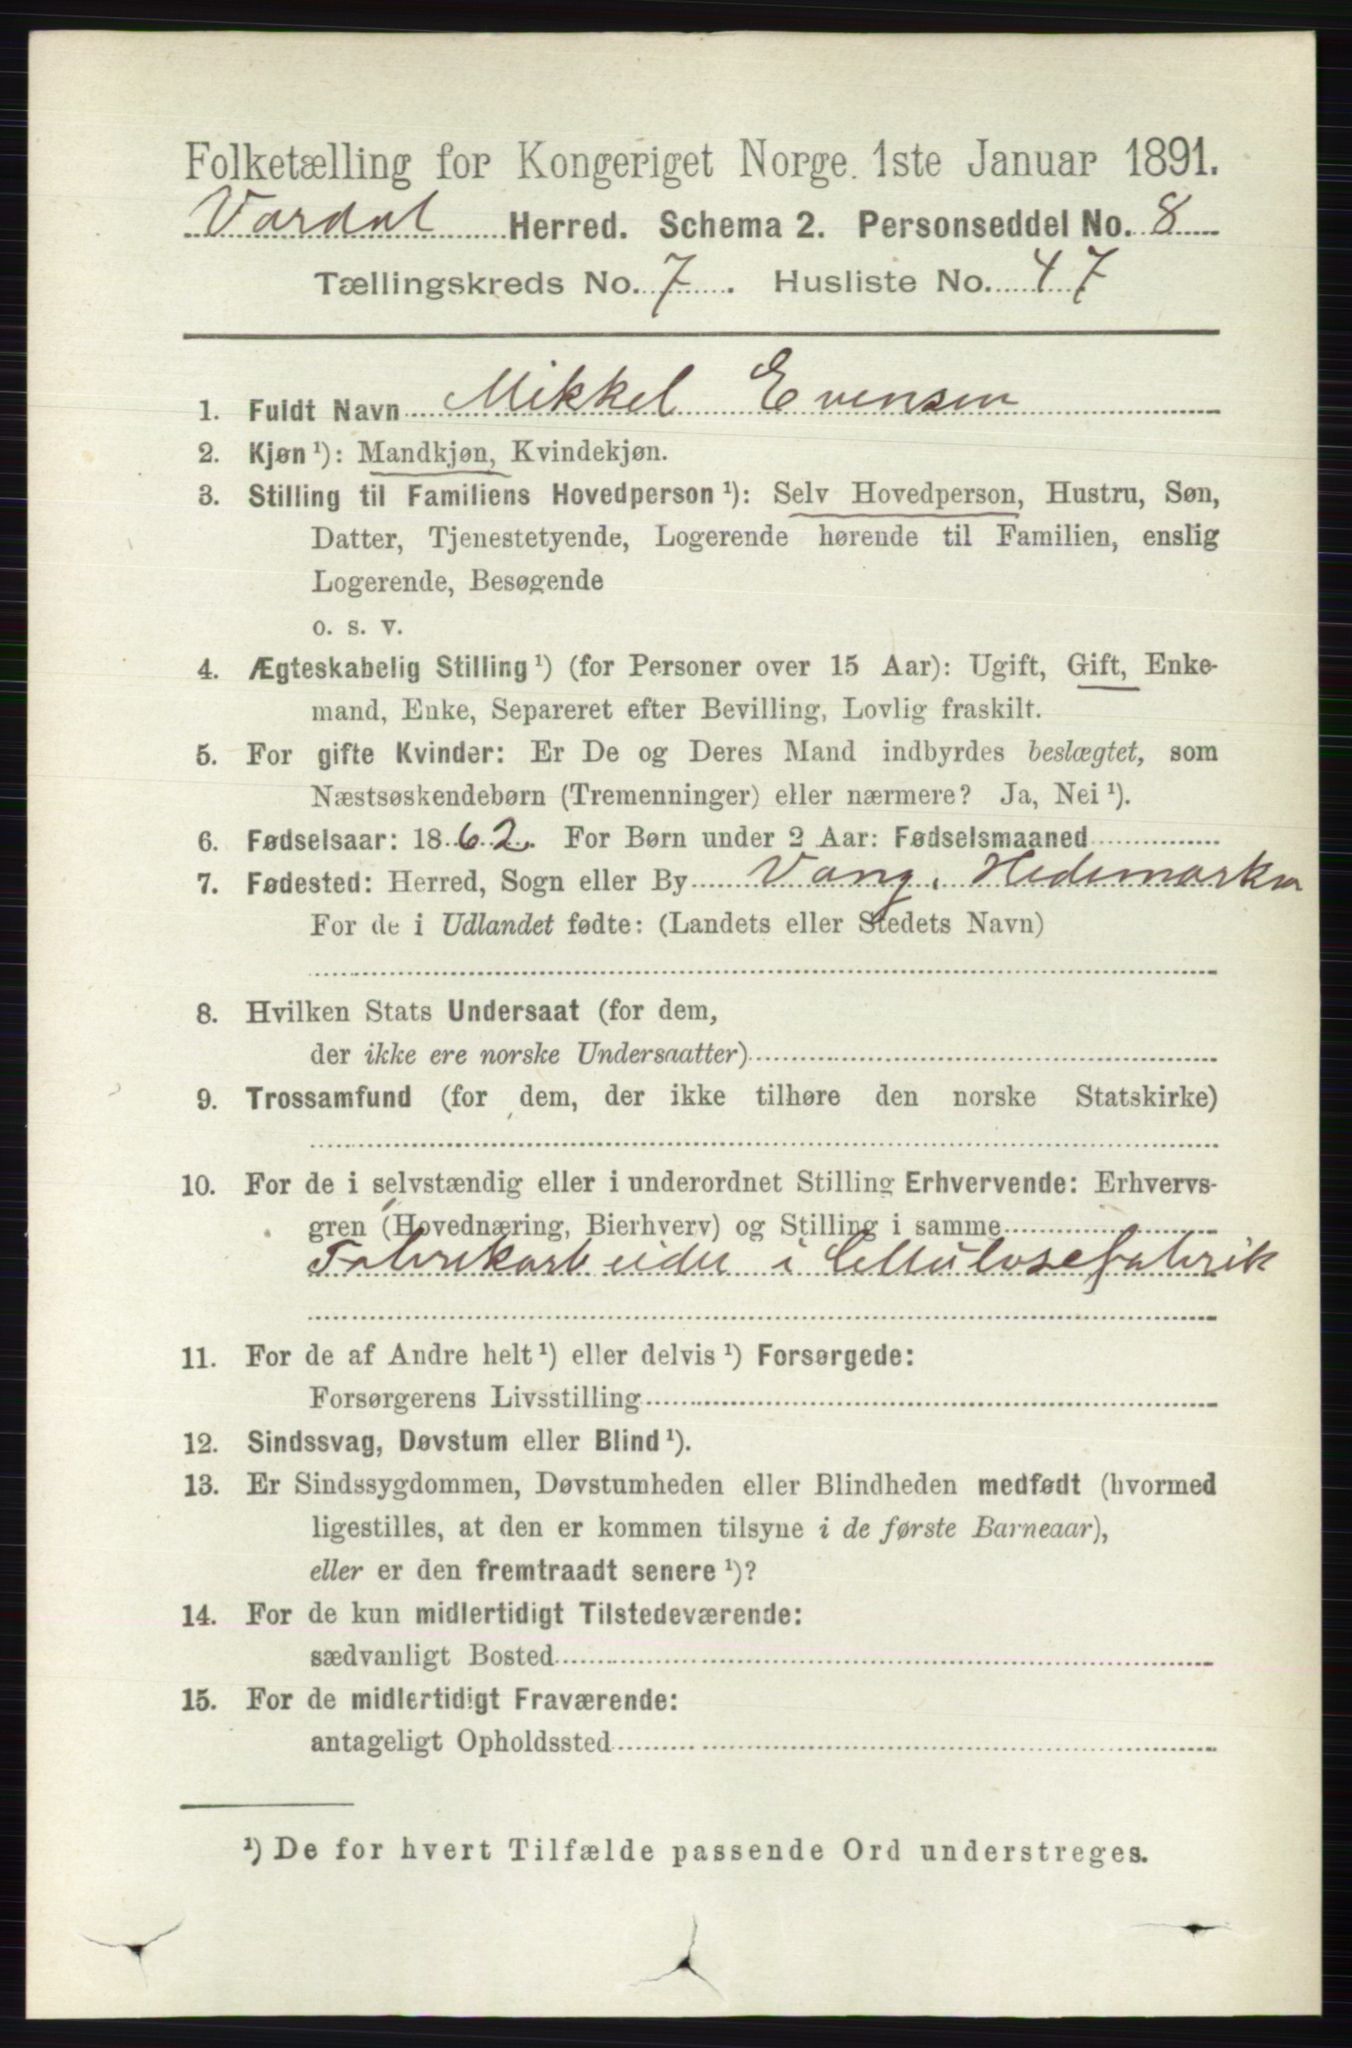 Folketælling for Kongeriget Norge 1ste Januar 1891.
Vardal Herred. Schema 2. Personseddel No. 8
Tællingskreds No. 7. Husliste No. 47
1. Fuldt Navn Mikkel Evensen
2. Kjøn ¹): Mandkjøn, Kvindekjøn.
3. Stilling til Familiens Hovedperson ¹): Selv Hovedperson, Hustru, Søn,
Datter, Tjenestetyende, Logerende hørende til Familien, enslig
Logerende, Besøgende
o. s. v.
4. Ægteskabelig Stilling ¹) (for Personer over 15 Aar): Ugift, Gift, Enke-
mand, Enke, Separeret efter Bevilling, Lovlig fraskilt.
5. For gifte Kvinder: Er De og Deres Mand indbyrdes beslægtet, som
Næstsøskendebørn (Tremenninger) eller nærmere? Ja, Nei ¹).
6. Fødselsaar: 1862. For Børn under 2 Aar: Fødselsmaaned
7. Fødested: Herred, Sogn eller By Vang, Hedemarken
For de i Udlandet fødte: (Landets eller Stedets Navn)
8. Hvilken Stats Undersaat (for dem,
der ikke ere norske Undersaatter)
9. Trossamfund (for dem, der ikke tilhøre den norske Statskirke)
10. For de i selvstændig eller i underordnet Stilling Erhvervende: Erhvervs-
gren (Hovednæring, Bierhverv) og Stilling i samme
Fabrikarbeider i Cellulosefabrik
11. For de af Andre helt ¹) eller delvis ¹) Forsørgede:
Forsørgerens Livsstilling
12. Sindssvag, Døvstum eller Blind ¹).
13. Er Sindssygdommen, Døvstumheden eller Blindheden medfødt (hvormed
ligestilles, at den er kommen tilsyne i de første Barneaar),
eller er den fremtraadt senere ¹)?
14. For de kun midlertidigt Tilstedeværende:
sædvanligt Bosted
15. For de midlertidigt Fraværende:
antageligt Opholdssted
¹) De for hvert Tilfælde passende Ord understreges.